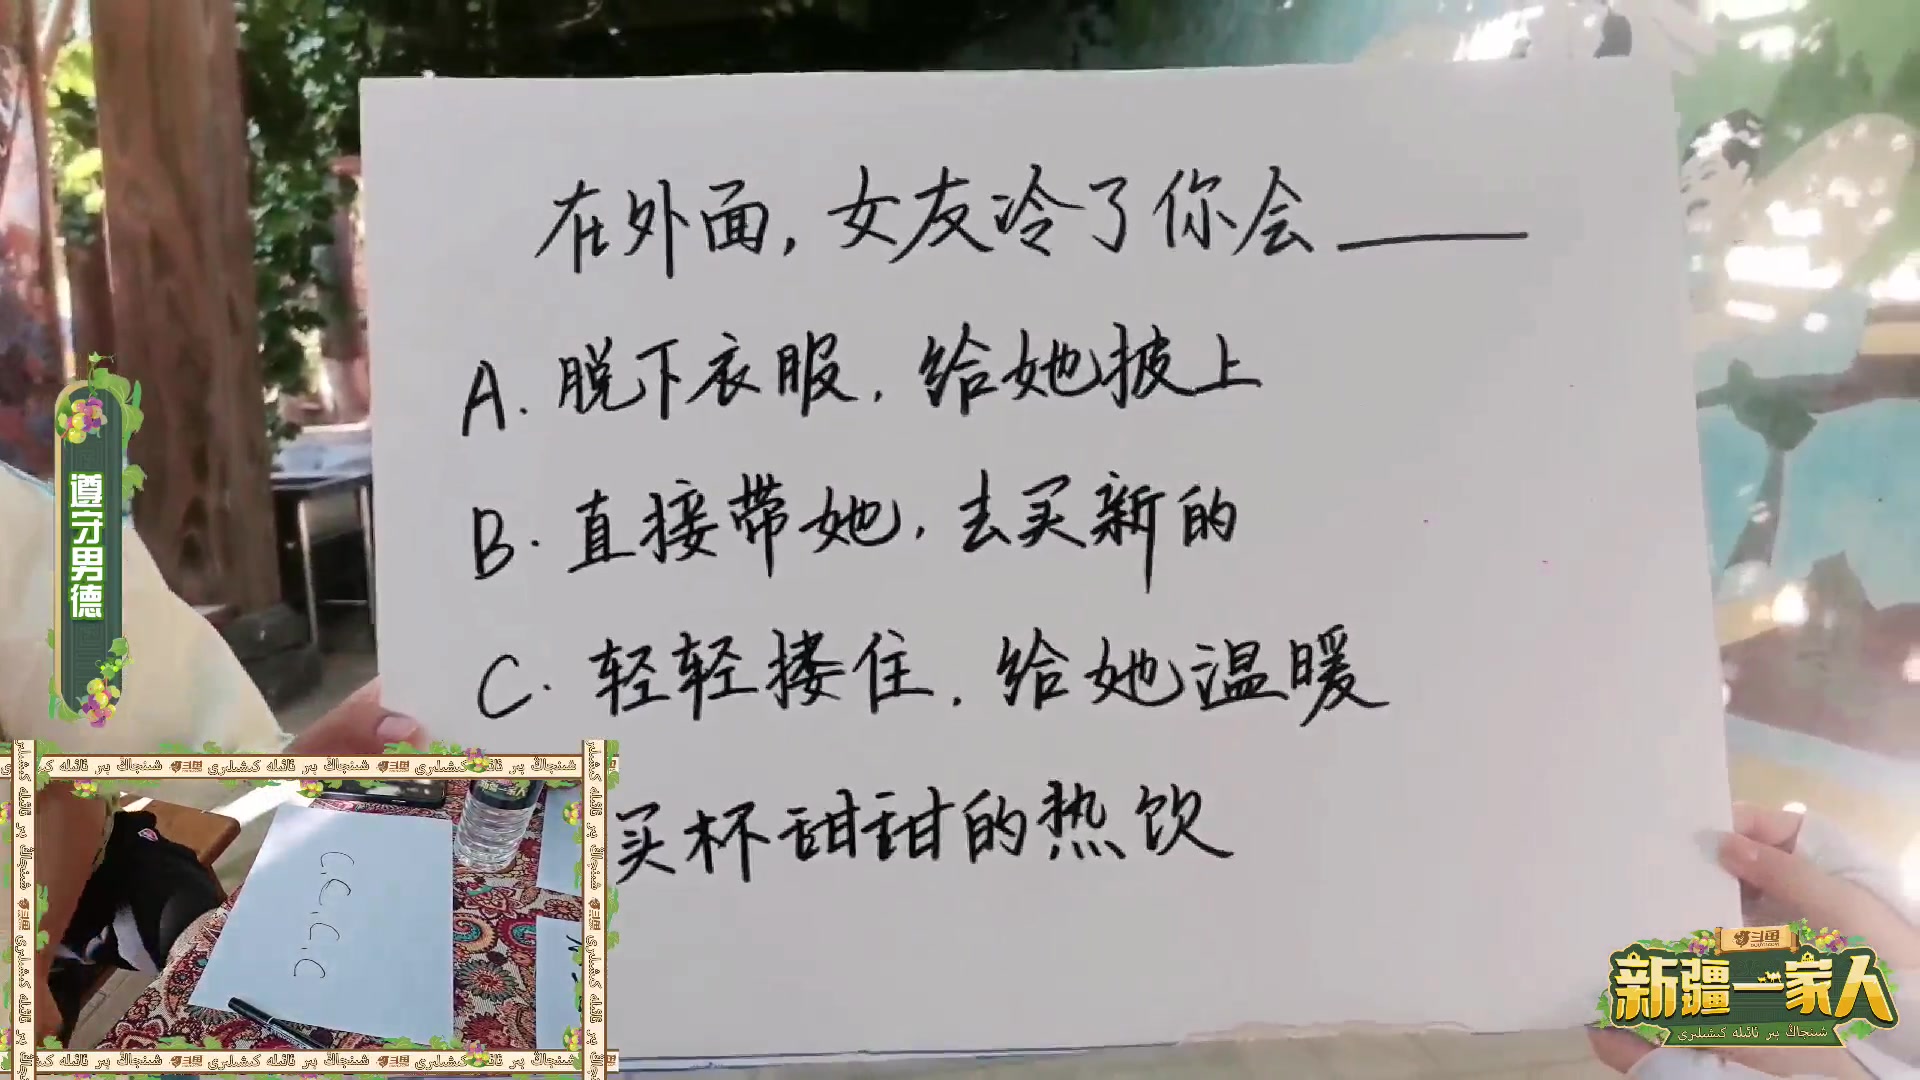 在外面，女友冷了你会____
A. 脱下衣服，给她披上
B. 直接带她，去买新的
C. 轻轻搂住，给她温暖
买杯甜甜的热饮
遵守男德
شىنجاڭ بىر ئائىلە كىشىلىرى
斗鱼
C.C.C.C
斗鱼
新疆一家人
شىنجاڭ بىر ئائىلە كىشىلىرى